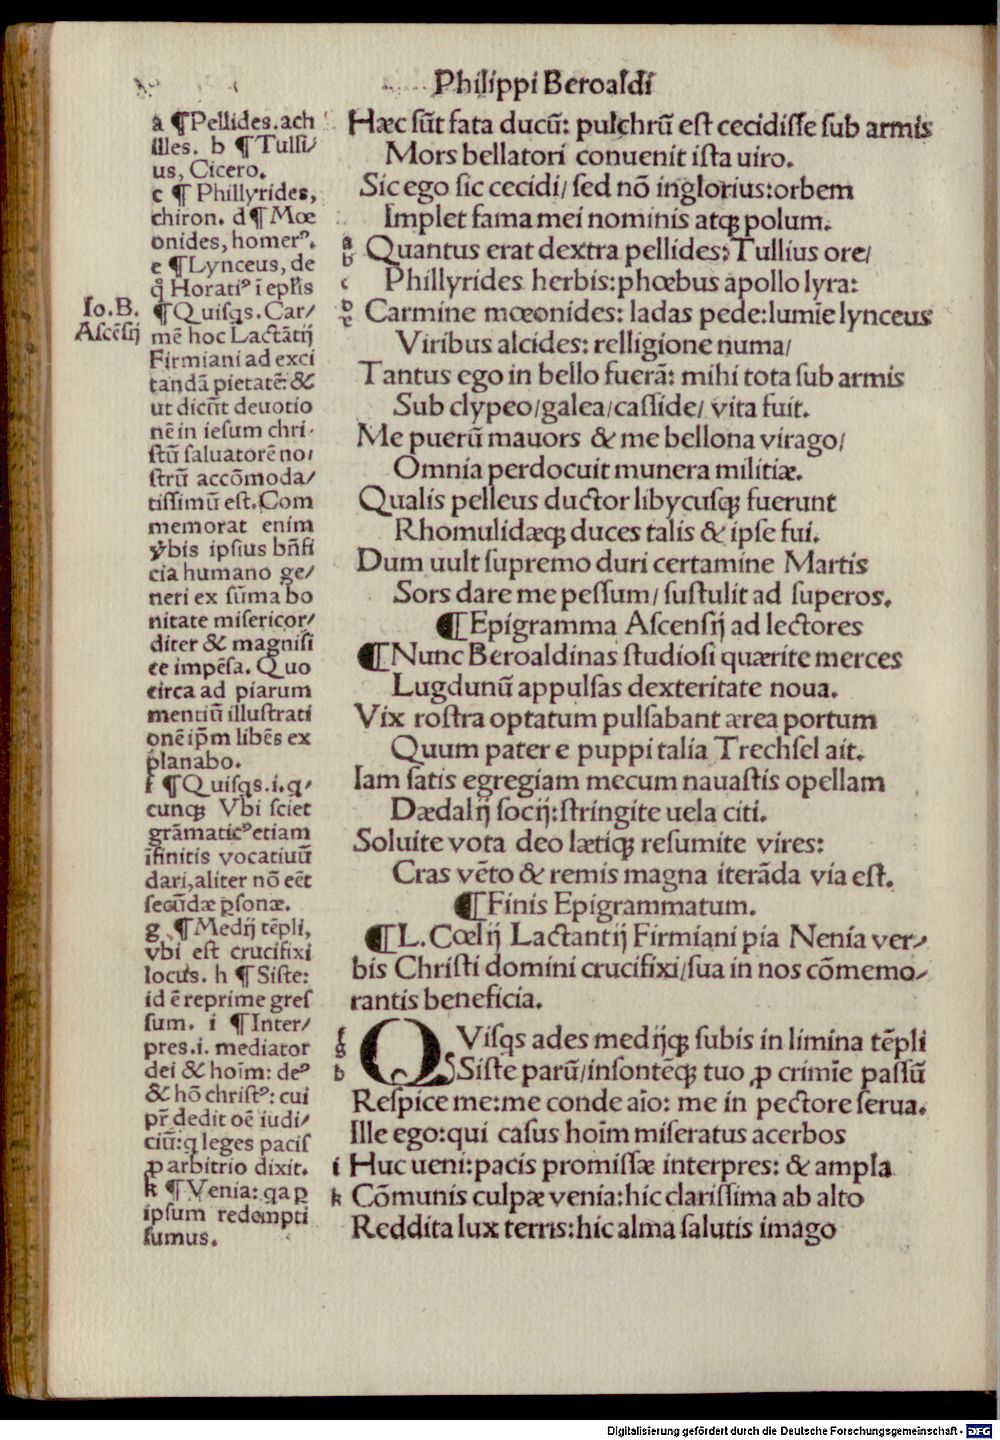 Philippi Beroaldi
a ¶Pellides.ach
illes. b ¶Tulli/
us, Cicero.
c ¶ Phillyrides,
chiron. d¶Mœ
onides, homerꝰ.
e ¶Lynceus, de
q̊ Horatiꝰ ī epl̄is
Io.B.
Ascēsij
¶Quisqs.Car/
mē hoc Lactātij
Firmiani ad exci
tandā pietatē:&
ut dicūt deuotio
nē in iesum chri/
stū saluatorē no/
strū accōmoda/
tissimū est.Com
memorat enim
v̆bis ipsius bn̄fi
cia humano ge/
neri ex sūma bo
nitate misericor/
diter & magnifi
ce impēsa. Quo
circa ad piarum
mentiū illustrati
onē ip̄m libēs ex
planabo.
f ¶Quisqs.i.q/
cunqꝫ Vbi sciet
grāmaticꝰ etiam
īfinitis vocatiuū
dari,aliter nō eēt
secūdæ ꝑsonæ.
g ¶Medij tēpli,
vbi est crucifixi
locus. h ¶Siste:
id ē reprime gres
sum. i ¶Inter/
pres.i. mediator
dei & hoīm: deꝰ
& hō christꝰ: cui
pr̄ dedit oē iudi/
ciū:q leges pacis
ꝓ arbitrio dixit.
k ¶Venia: qa ꝑ
ipsum redempti
sumus.
Hæc sūt fata ducū: pulchrū est cecidisse sub armis
Mors bellatori conuenit ista uiro.
Sic ego sic cecidi/ sed nō inglorius:orbem
Implet fama mei nominis atqꝫ polum.
a b Quantus erat dextra pellides: Tullius ore/
c Phillyrides herbis:phœbus apollo lyra:
d e Carmine mœonides: ladas pede:lumīe lynceus
Viribus alcides: relligione numa/
Tantus ego in bello fuerā: mihi tota sub armis
Sub clypeo/galea/casside/ vita fuit.
Me puerū mauors & me bellona virago/
Omnia perdocuit munera militiæ.
Qualis pelleus ductor libycusqꝫ fuerunt
Rhomulidæqꝫ duces talis & ipse fui.
Dum uult supremo duri certamine Martis
Sors dare me pessum/ sustulit ad superos.
¶Epigramma Ascensij ad lectores
¶Nunc Beroaldinas studiosi quærite merces
Lugdunū appulsas dexteritate noua.
Vix rostra optatum pulsabant ærea portum
Quum pater e puppi talia Trechsel ait.
Iam satis egregiam mecum nauastis opellam
Dædalij socij:stringite uela citi.
Soluite vota deo lætiqꝫ resumite vires:
Cras vēto & remis magna iterāda via est.
¶Finis Epigrammatum.
¶L. Cœlij Lactantij Firmiani pia Nenia ver/
bis Christi domini crucifixi/sua in nos cōmemo/
rantis beneficia.
f g QVisqs ades medijqꝫ subis in limina tēpli
h Siste parū/insontēqꝫ tuo ꝓ crimīe passū
Respice me:me conde aīo: me in pectore serua.
Ille ego:qui casus hoīm miseratus acerbos
i Huc ueni:pacis promissæ interpres: & ampla
k Cōmunis culpæ venia:hic clarissima ab alto
Reddita lux terris:hic alma salutis imago
Digitalisierung gefördert durch die Deutsche Forschungsgemeinschaft - DFG